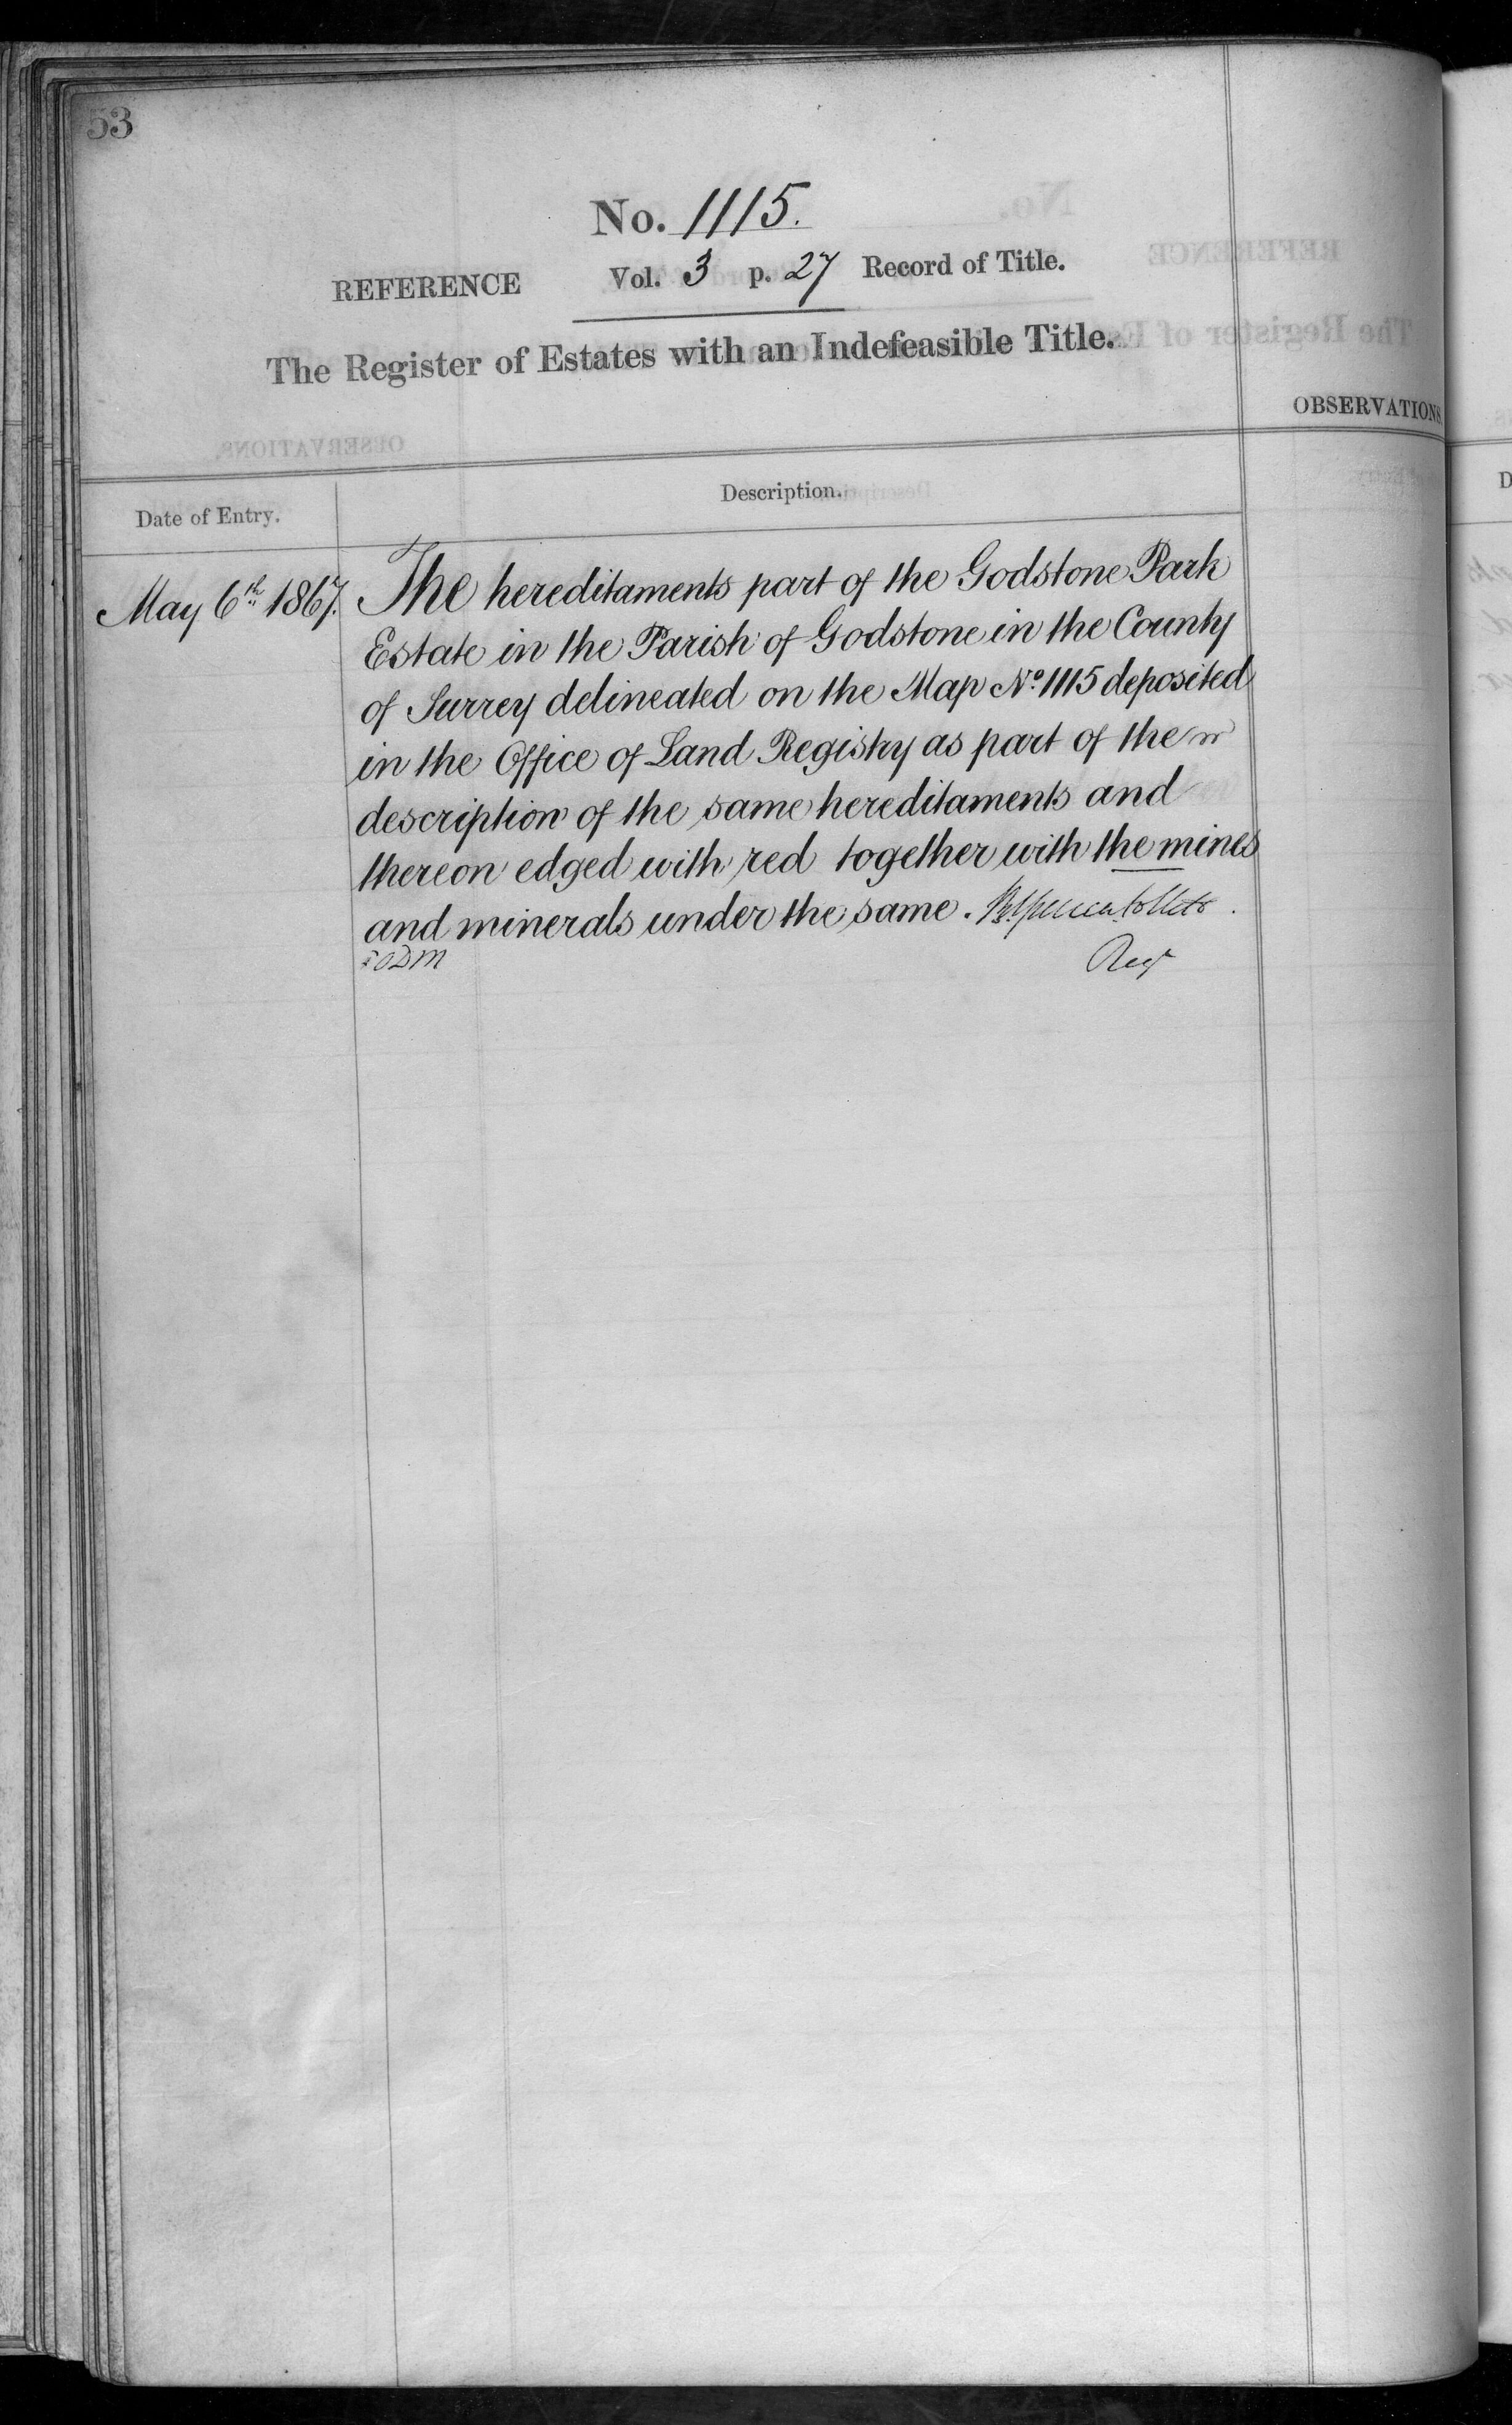 53
No. 1115.
REFERENCE Vol. 3 p. 27 Record of Title.
The Register of Estates with an Indefeasible Title.
OBSERVATIONS
Date of Entry.
Description.
May 6th 1867.
The hereditaments part of the Godstone Park
Estate in the Parish of Godstone in the County
of Surrey delineated on the Map No. 1115 deposited
in the Office of Land Registry as part of the
description of the same hereditaments and
thereon edged with red together with the mines
and minerals under the same.
ODM
Regr